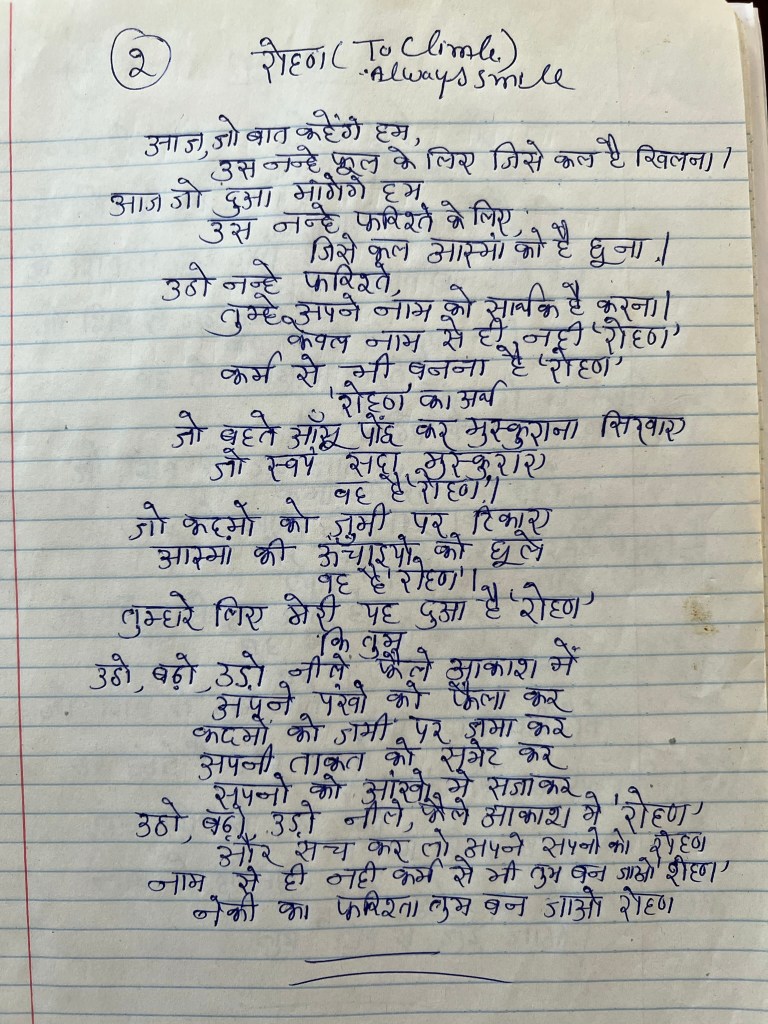 २ रोहण (To Climb)
Always smile
आज, जो बात कहेंगे हम,
उस नन्हे फूल के लिए जिसे कल है खिलना।
आज जो दुआ मांगेगे हम
उस नन्हे फरिश्ते के लिए,
जिसे कल आस्मां को है छूना।
उठो नन्हे फरिश्ते,
तुम्हे अपने नाम को सार्थक है करना।
केवल नाम से ही नही 'रोहण'
कर्म से भी बनना है 'रोहण'
'रोहण' का अर्थ
जो बहते आँसू पोंछ कर मुस्कुराना सिखाए
जो स्वयं सदा मुस्कुराए
वह है 'रोहण'।
जो कदमों को ज़मी पर टिकाए
आस्मां की ऊँचाइयो को छूले
वह है 'रोहण'।
तुम्हारे लिए मेरी यह दुआ है 'रोहण'
कि तुम
उठो, बढ़ो, उड़ो नीले फैले आकाश में
अपने पंखो को फैला कर
कदमों को ज़मी पर ज़मा कर
अपनी ताकत को समेट कर
सपनो को आंखो में सजाकर
उठो, बढ़ो, उड़ो नीले, फैले आकाश मे 'रोहण'
और सच कर लो अपने सपनो को रोहण
नाम से ही नही कर्म से भी तुम बन जाओ रोहण'
नेकी का फरिश्ता तुम बन जाओ रोहण